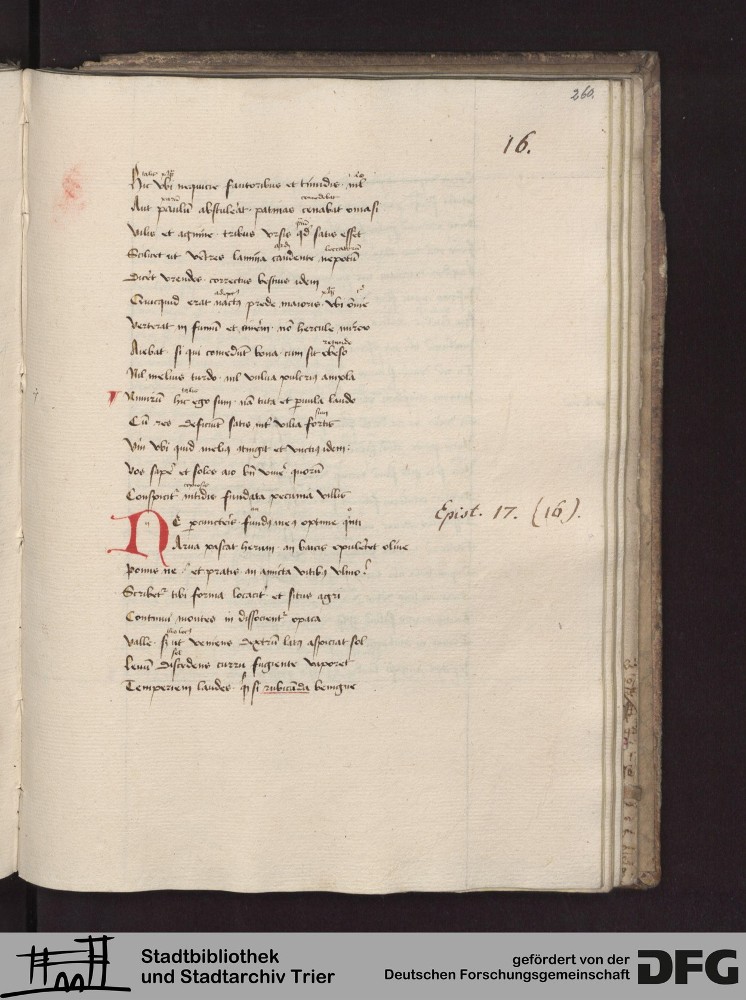 260.
16.
Hic vbi nequicie fautoribus et timidis nil
Aut paulū abstulerat patinas cenabat omasi
Vilis et agnine tribus vrsis qd satis esset
Scilicet ut vētres lamina candente nepotū
Diceret vrendos correctus bestius idem
Quicquid erat nactus prede maioris vbi omne
Verterat in fumū et cinerē nō hercule miror
Aiebat si qui comedūt bona cum sit obeso
Nil melius turdo nil vulua pulcrius ampla
Nimirū hic ego sum nā tuta et paruula laudo
Cū res deficiūt satis inter vilia fortis
Verū vbi quid melius contigit et vnctius idem
Vos sapere et solos aio bn viuere quorū
Conspicitur nitidis fundata pecunia villis
Epist. 17. (16).
NE percuncteris fundus meus optime quinti
Arua pascat herum an baccis opulentet oliue
Pomis ne et pratis an amicta vitibus vlmo
Scribetur tibi forma locaciter et situs agri
Continui montes ni dissocientur opaca
Valle sed ut veniens dextrū latus aspiciat sol
Leuū discedens curru fugiente vaporet
Temperiem laudes quid si rubicūda benigne
Stadtbibliothek
und Stadtarchiv Trier
gefördert von der
Deutschen Forschungsgemeinschaft
DFG